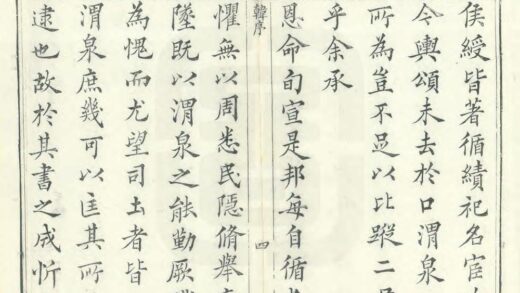 侯綬皆著循績祀名宦
令輿頌未去於口渭泉
所為豈不足以比蹤二
乎余承
恩命旬宣是邦每自循
韓序
四
懼無以周悉民隱脩舉
墜既以渭泉之能勤厥
為愧而尤望司土者皆
渭泉庶幾可以匡其所
逮也故於其書之成忻